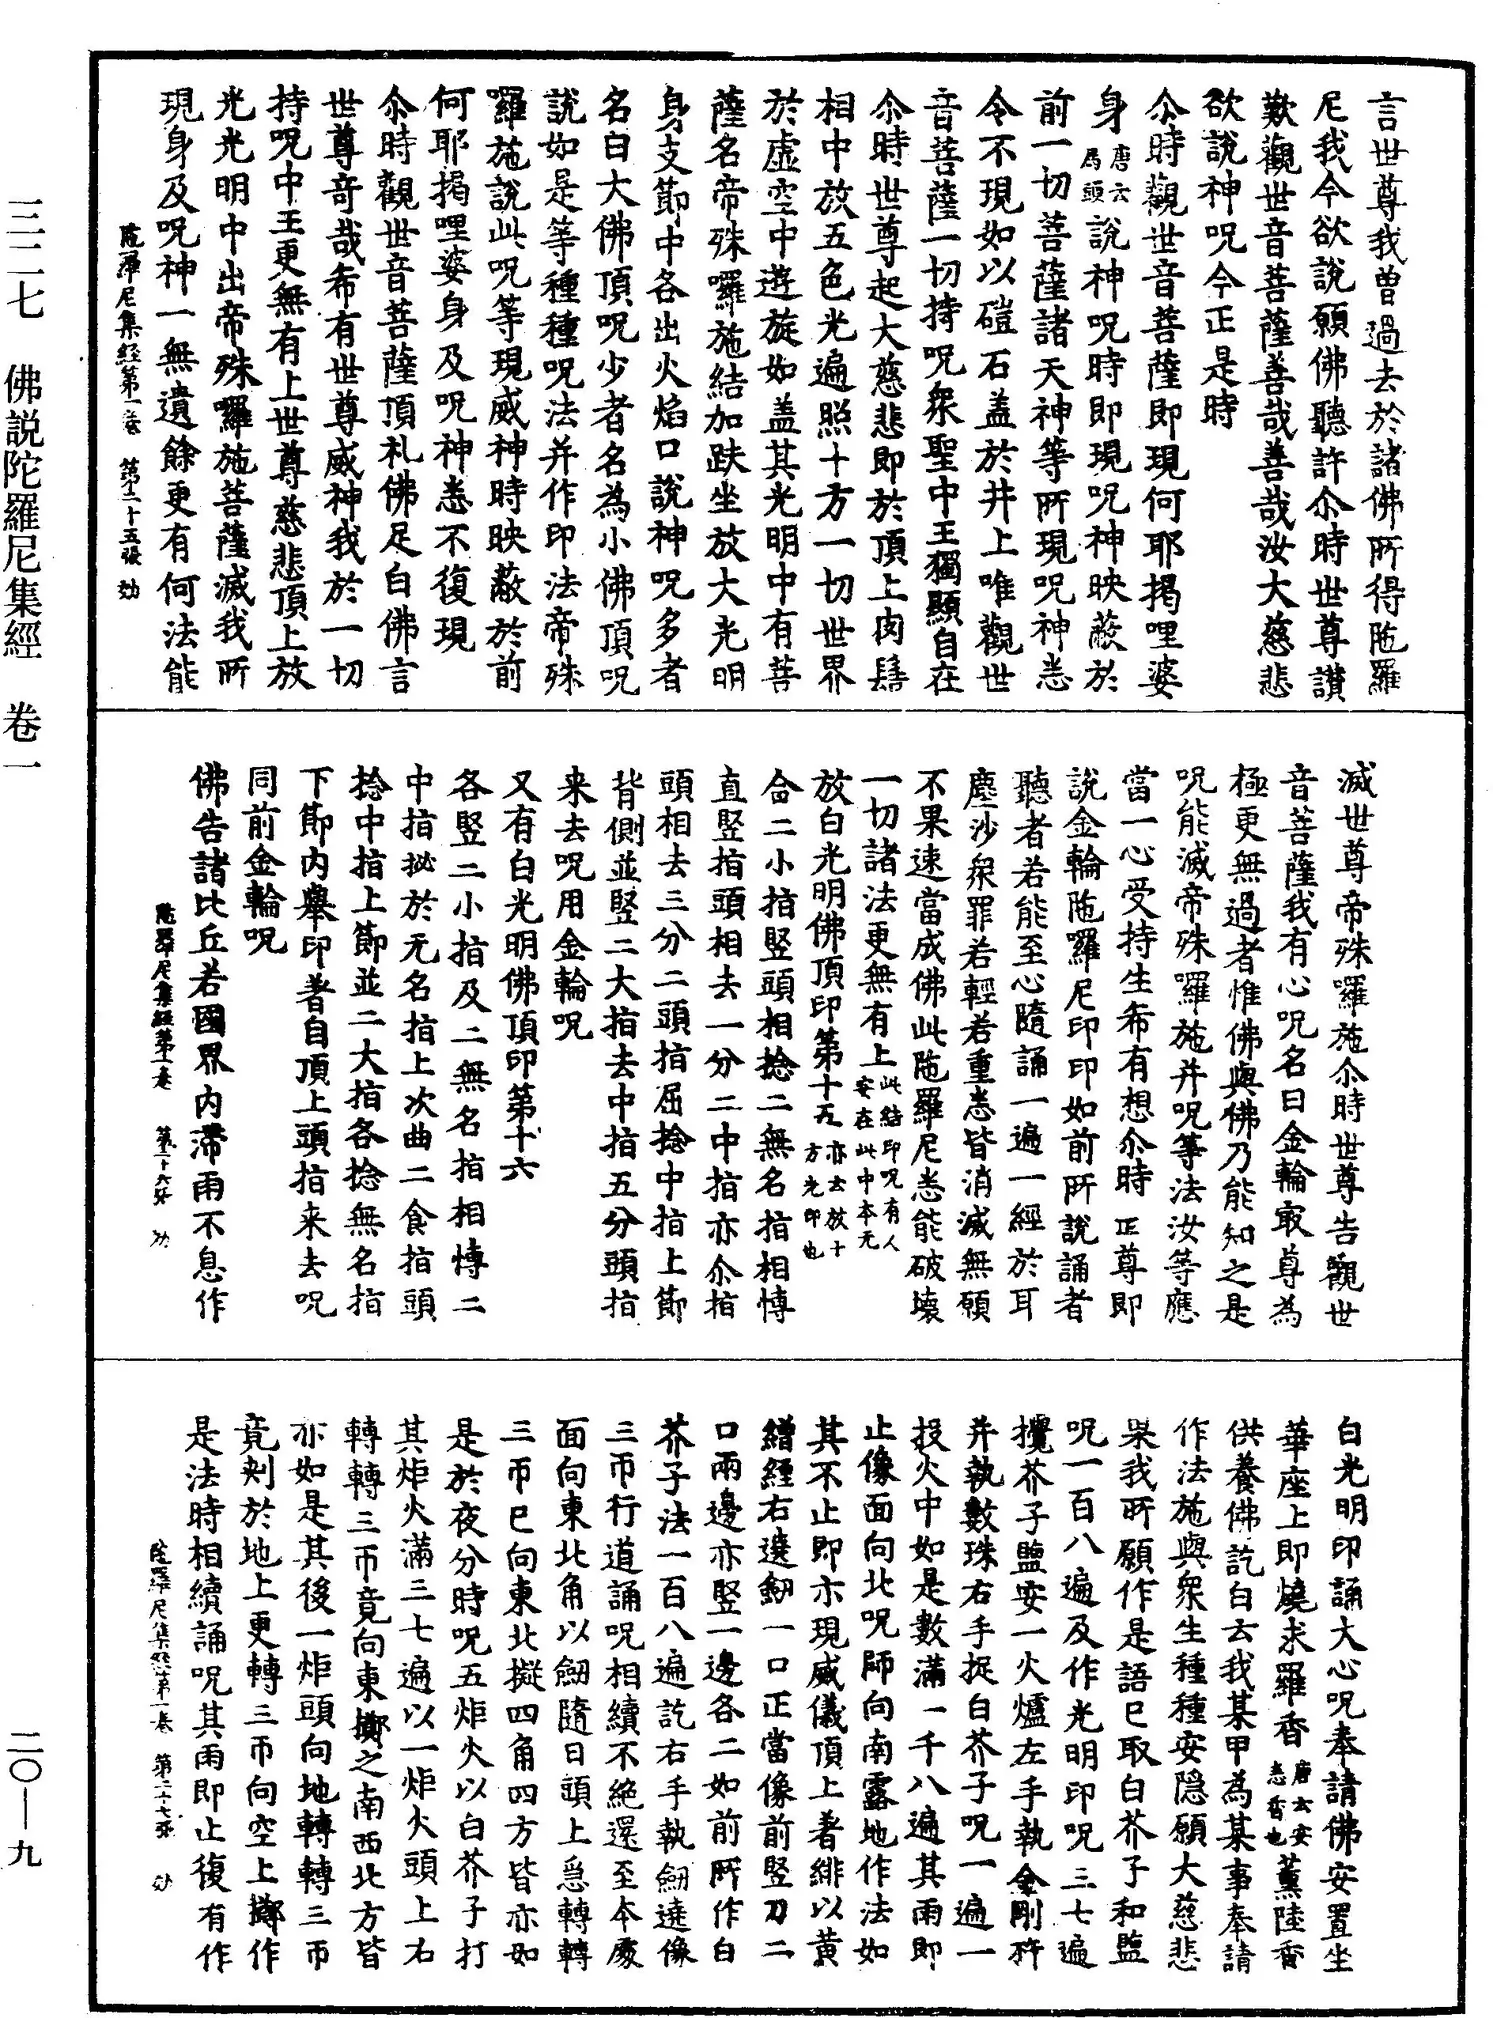 言世尊我曾過去於諸佛所得陁羅
尼我今欲說願佛聽許尒時世尊讃
歎觀世音菩薩善哉善哉汝大慈悲
欲說神呪今正是時
尒時觀世音菩薩即現何耶揭哩婆
身唐云馬頭說神呪時即現呪神映蔽於
前一切菩薩諸天神等所現呪神悉
令不現如以磑石盖於井上唯觀世
音菩薩一切持呪衆聖中王獨顯自在
尒時世尊起大慈悲即於頂上肉髻
相中放五色光遍照十方一切世界
於虛空中遊旋如盖其光明中有菩
薩名帝殊囉施結加趺坐放大光明
身支節中各出火焰口說神呪多者
名曰大佛頂呪少者名為小佛頂呪
說如是等種種呪法并作印法帝殊
羅施說此呪等現威神時映蔽於前
何耶揭哩婆身及呪神悉不復現
尒時觀世音菩薩頂礼佛足白佛言
世尊奇哉希有世尊威神我於一切
持呪中王更無有上世尊慈悲頂上放
光光明中出帝殊囉施菩薩滅我所
現身及呪神一無遺餘更有何法能
陁羅尼集經第一卷 第二十五張 効
滅世尊帝殊囉施尒時世尊告觀世
音菩薩我有心呪名曰金輪㝡尊為
極更無過者惟佛與佛乃能知之是
呪能滅帝殊囉施并呪等法汝等應
當一心受持生希有想尒時正尊即
說金輪陁羅尼印印如前所說誦者
聽者若能至心隨誦一遍一經於耳
塵沙衆罪若輕若重悉皆消滅無願
不果速當成佛此陁羅尼悉能破壞
一切諸法更無有上此結印呪有人安在此中本无
放白光明佛頂印第十五亦云放十方光印也
合二小指竪頭相捻二無名指相愽
直竪指頭相去一分二中指亦尒指
頭相去三分二頭指屈捻中指上節
背側並竪二大指去中指五分頭指
来去呪用金輪呪
又有白光明佛頂印第十六
各竪二小指及二無名指相愽二
中指拟於无名指上次曲二食指頭
捻中指上節並二大指各捻無名指
下節内舉印著自頂上頭指来去呪
同前金輪呪
佛告諸比丘若國界内滯雨不息作
陁羅尼集經第一卷 第二十六張 効
白光明印誦大心呪奉請佛安置坐
華座上即燒求羅香唐云安悉香也薰陸香
供養佛訖白云我某甲為某事奉請
作法施與衆生種種安隱願大慈悲
果我所願作是語已取白芥子和鹽
呪一百八遍及作光明印呪三七遍
攪芥子鹽安一火爐左手執金剛杵
并執數珠右手捉白芥子呪一遍一
投火中如是數滿一千八遍其雨即
止像面向北呪師向南露地作法如
其不止即亦現威儀頂上著緋以黃
繒經右遶釼一口正當像前竪刀二
口兩邊亦竪一邊各二如前所作白
芥子法一百八遍訖右手執釼遶像
三帀行道誦呪相續不絶還至本處
面向東北角以釼隨日頭上急轉轉
三帀已向東北擬四角四方皆亦如
是於夜分時呪五炬火以白芥子打
其炬火滿三七遍以一炬火頭上右
轉轉三帀竟向東擲之南西北方皆
亦如是其後一炬頭向地轉轉三帀
竟剌於地上更轉三帀向空上擲作
是法時相續誦呪其雨即止復有作
陁羅尼集經第一卷 第二十七張 効
三二七 佛説陀羅尼集經 卷一
二〇—九